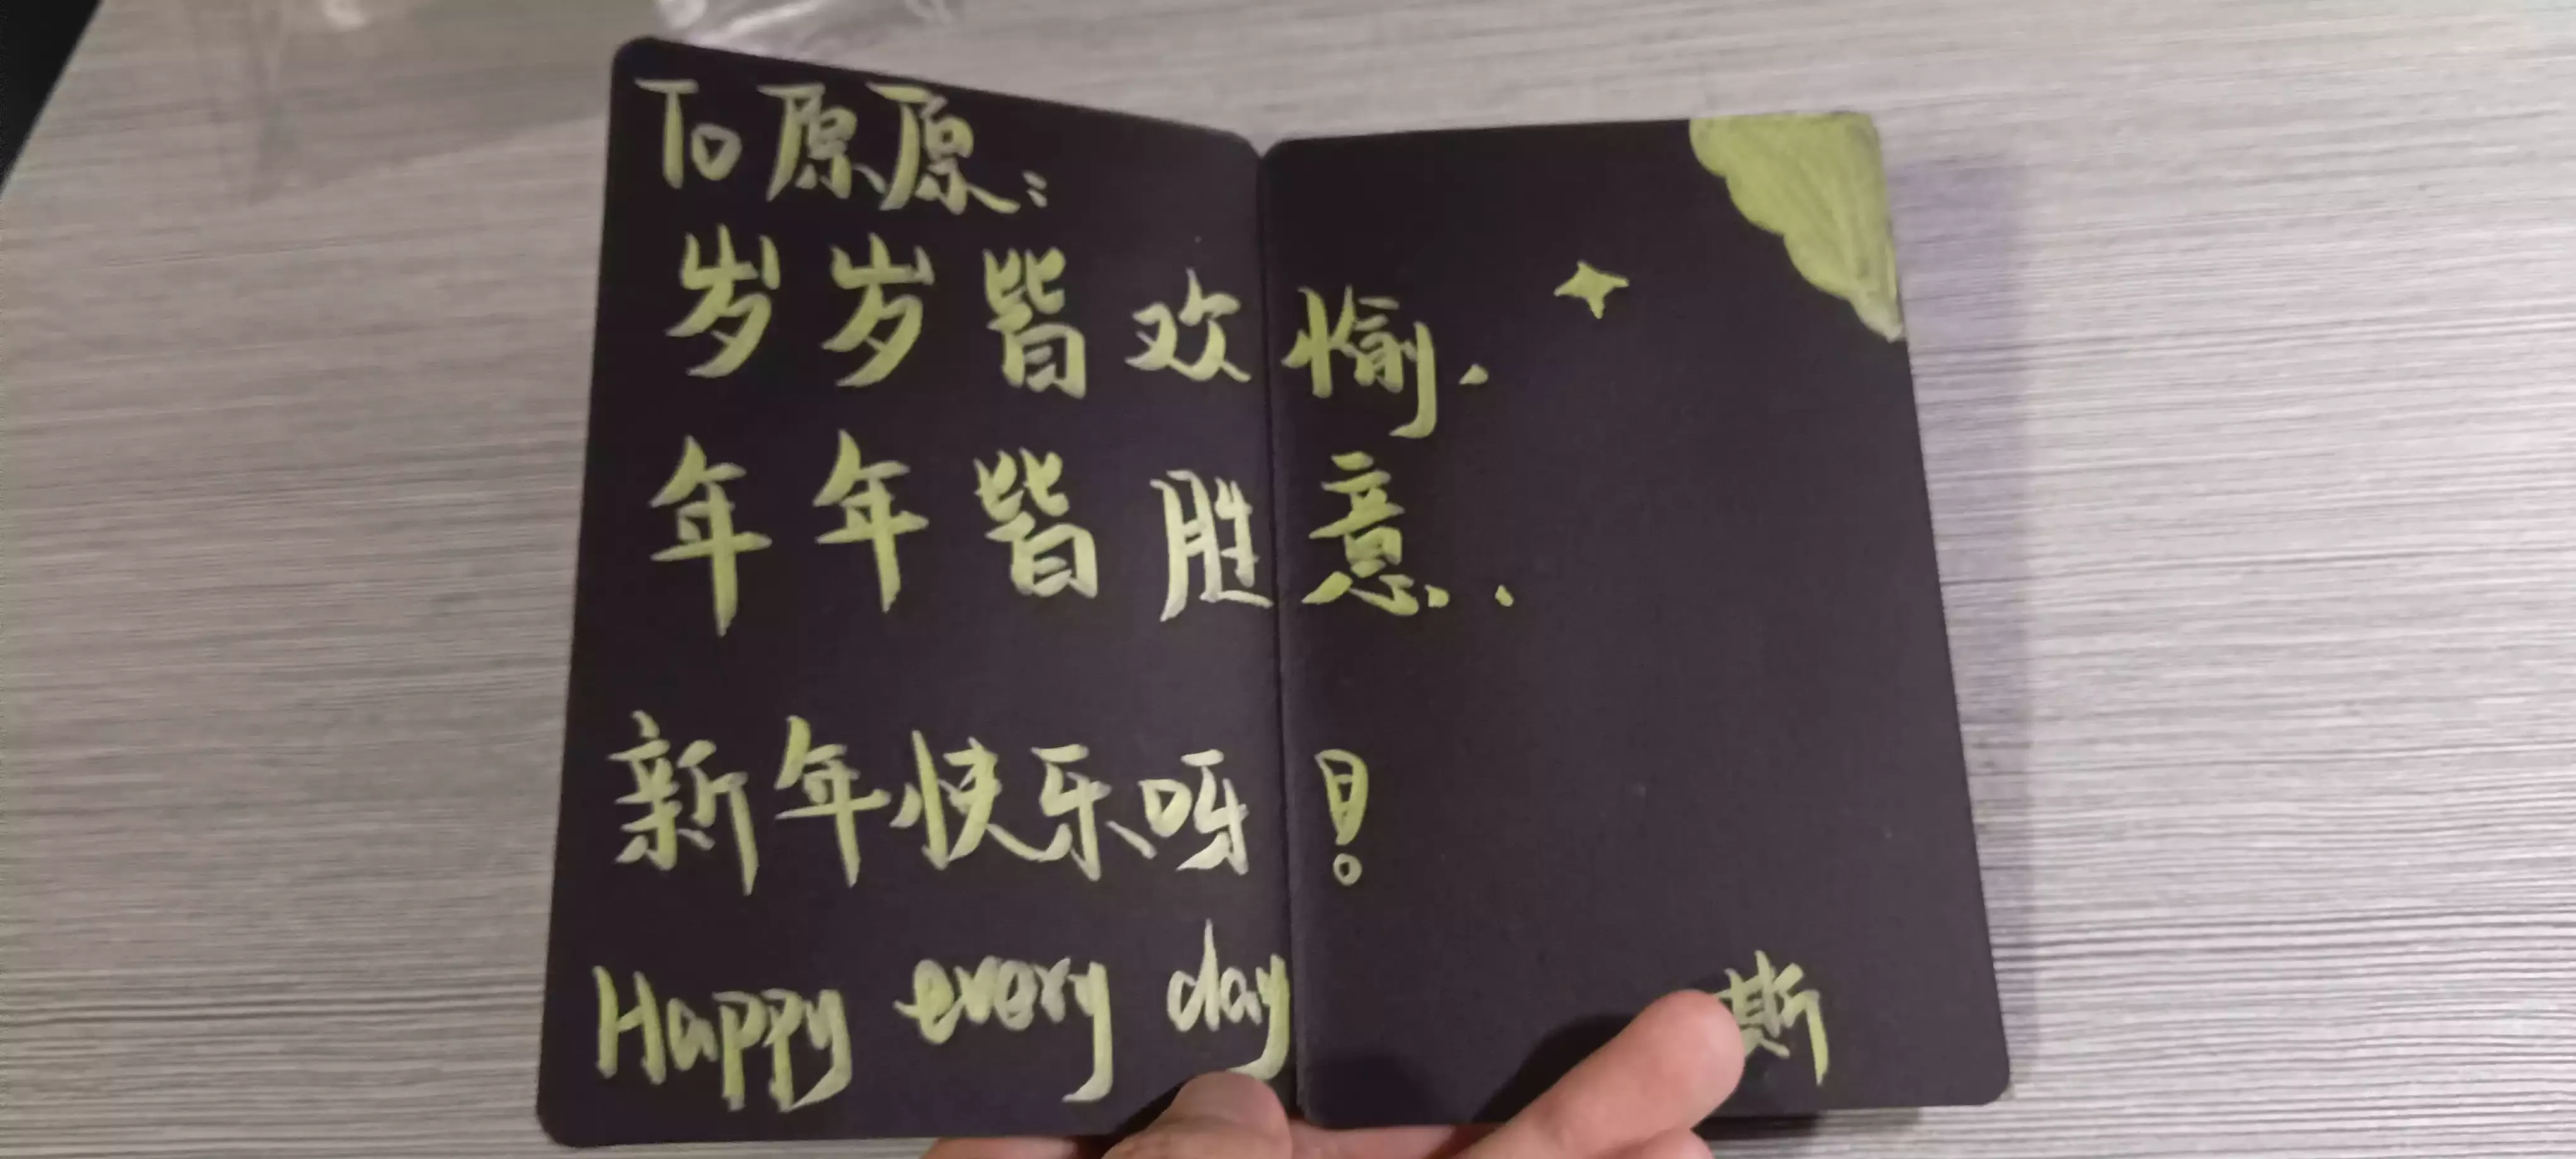 To 原原:
岁岁皆欢愉.
年年皆胜意.
新年快乐呀!
Happy every day
斯